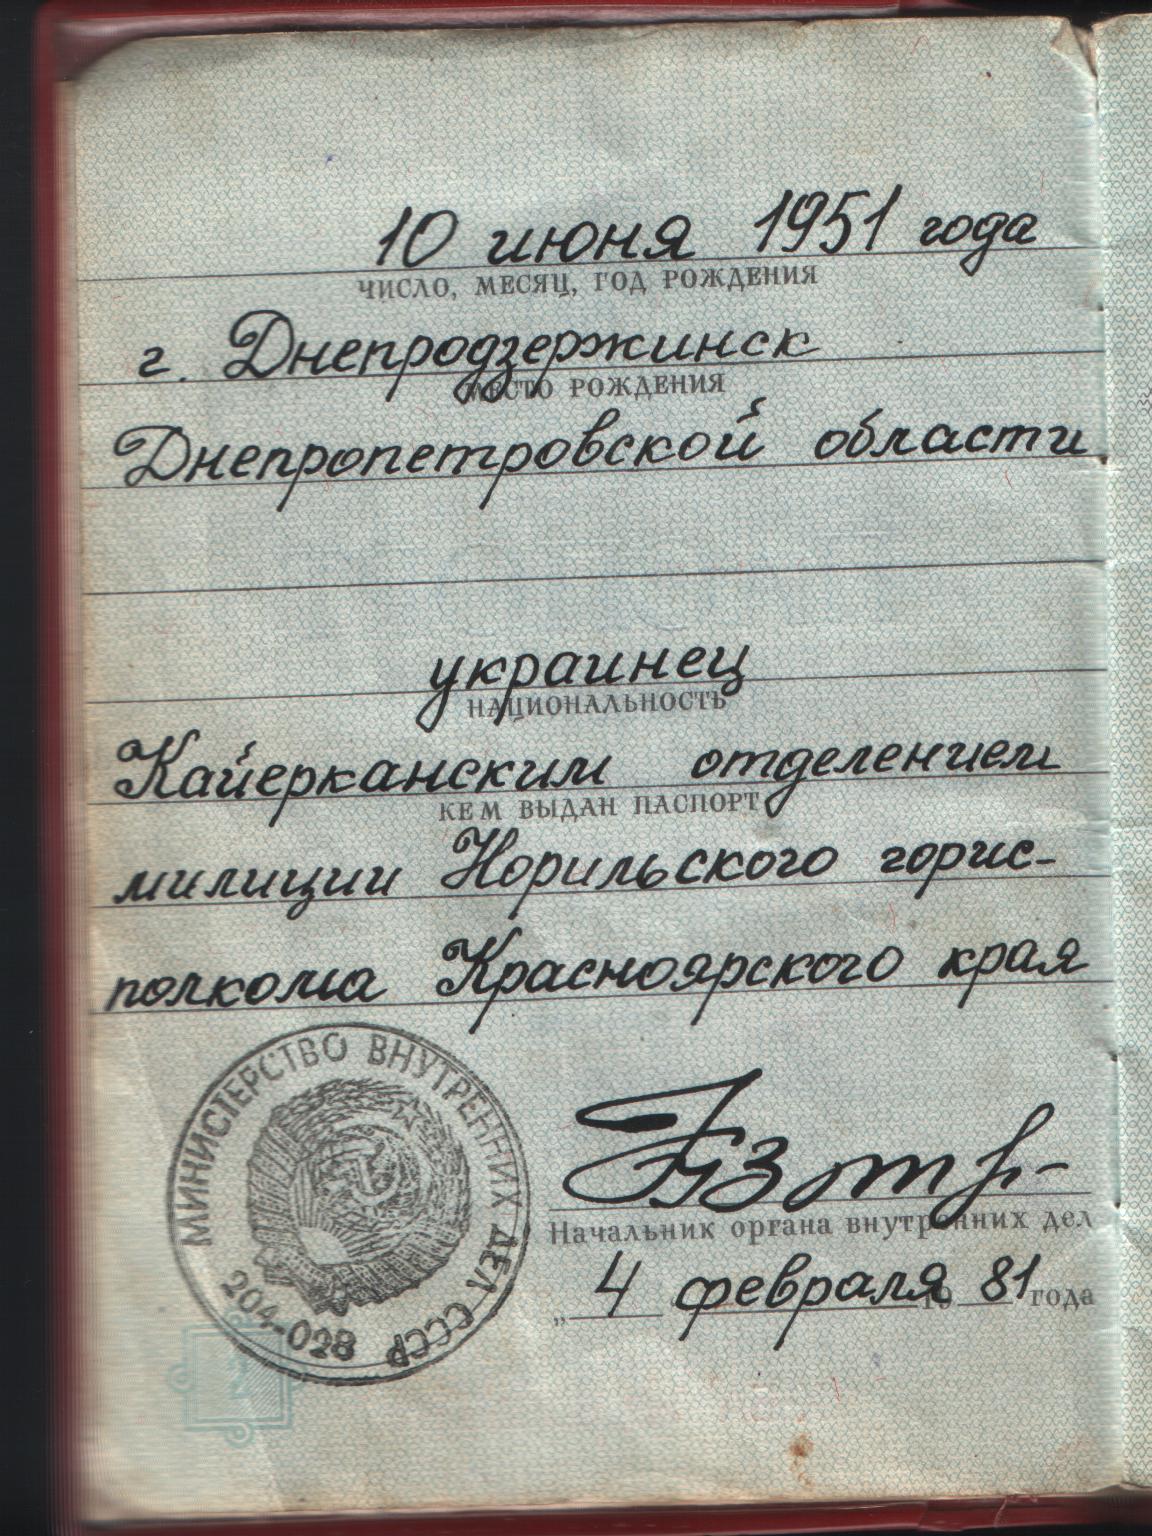 10 июня 1951 года
ЧИСЛО, МЕСЯЦ, ГОД РОЖДЕНИЯ
г. Днепродзержинск
МЕСТО РОЖДЕНИЯ
Днепропетровской области
украинец
НАЦИОНАЛЬНОСТЬ
Кайерканским отделением
КЕМ ВЫДАН ПАСПОРТ
милиции Норильского горис-
полкома Красноярского края
МИНИСТЕРСТВО ВНУТРЕННИХ ДЕЛ СССР
204-028
Начальник органа внутренних дел
„ 4 февраля 19 81 года
2